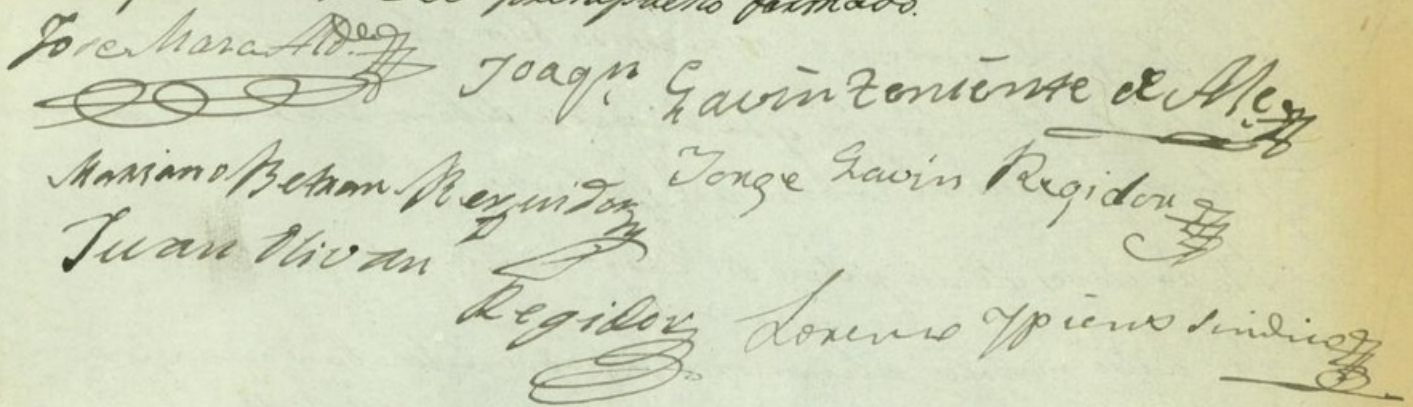 presupuesto formado.
Jose Mara Alde
Joaqn Gavin Teniente de Ale
Mariano Beltran Rexidor
Jorge Gavin Regidor
Juan Olivan
Regidor
Lorenzo Ypiens Sindico